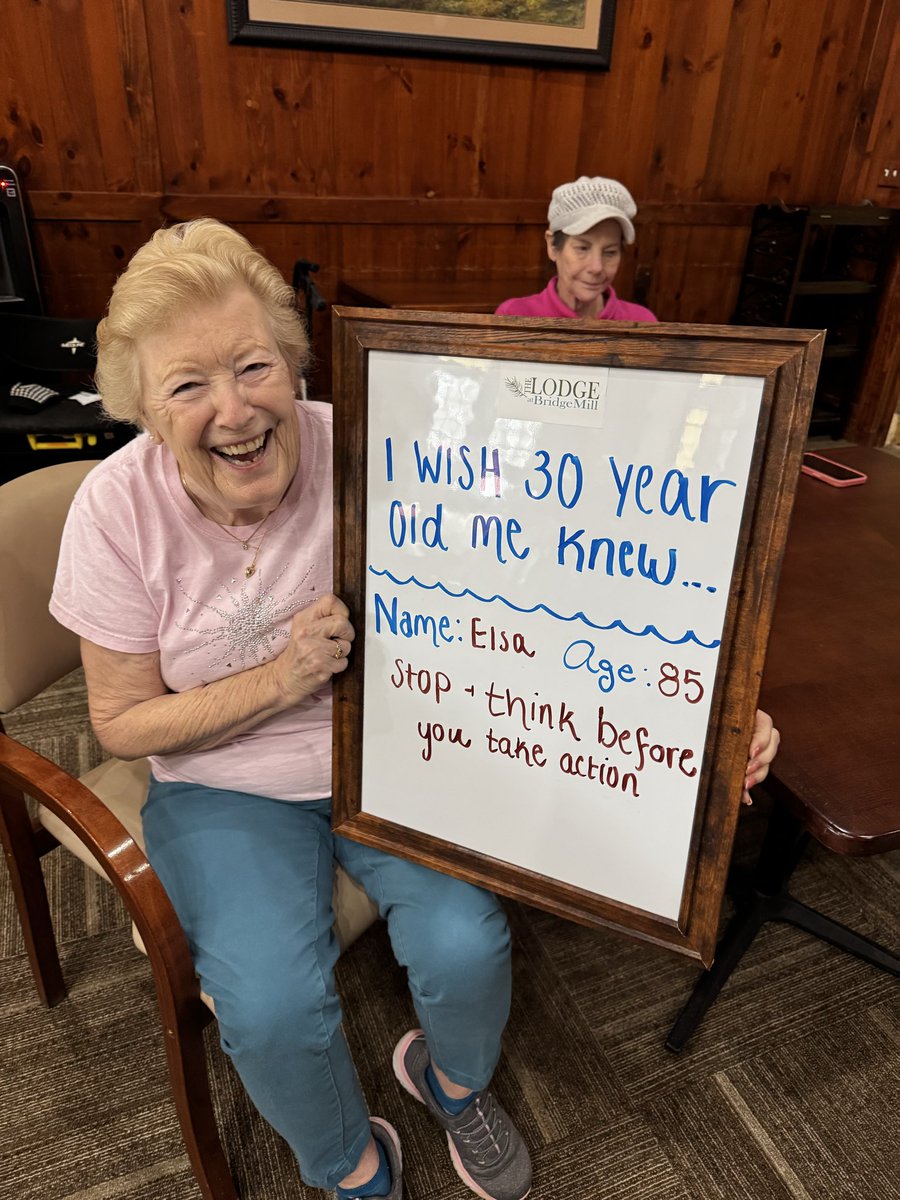 THE LODGE
at BridgeMill
I WISH 30 year
Old me knew...
Name: Elsa Age: 85
Stop + think before
you take action